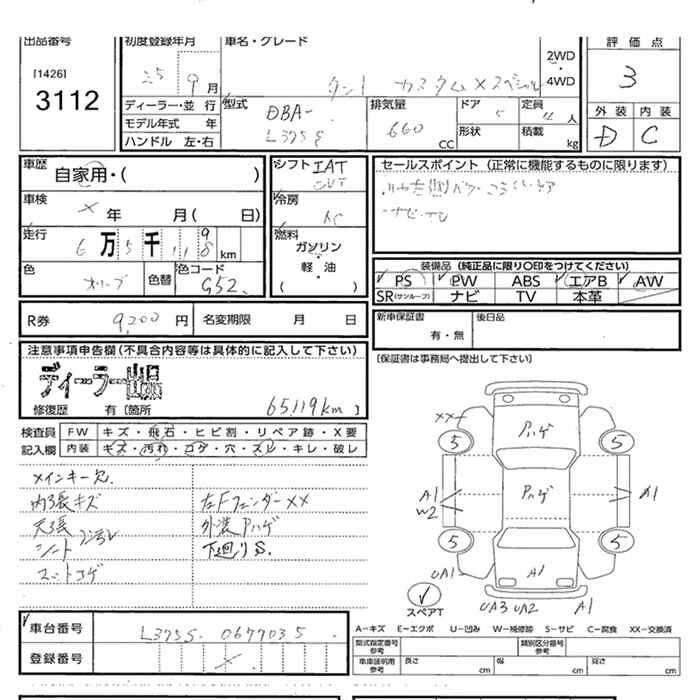 出品番号
[1426]
3112
初度登録年月
25 9 月
車名・グレード
タント カスタム X スペシャル
2WD
・
4WD
評価点
3
ディーラー・並行
モデル年式 年
ハンドル 左・右
型式
DBA-
L375S
排気量
660
CC
ドア 5
形状
定員 4 人
積載 kg
外装 内装
D C
車歴
自家用・( )
シフト IAT
セールスポイント (正常に機能するものに限ります)
・ナビ・テレビ
車検
× 年 月( 日)
冷房
AC
走行
6 万 5 千 1 1 9 km
燃料
ガソリン
・
軽・油
色
オリーブ
色替
色コード
G52
装備品 (純正品に限り○印をつけてください)
PS PW ABS エアB AW
SR(サンルーフ) ナビ TV 本革
R券 9,200 円 名変期限 月 日
新車保証書
有・無
後日品
[保証書は事務局へ提出して下さい]
注意事項申告欄(不具合内容等は具体的に記入して下さい)
ディーラー出品
修復歴 有〔箇所 65119km 〕
検査員 FW キズ・飛石・ヒビ割・リペア跡・X要
記入欄 内装 キズ・汚れ・コゲ・穴・スレ・キレ・破レ
メインキー欠
内張キズ 左Fフェンダー××
天張 外装Pハゲ
シート 下廻りS.
マットコゲ
××
Pハゲ
5 5
A1
W2
Pハゲ
A1
5 5
UA1
A1
スペアT
UA3 UA2 A1
車台番号 L375S-0677035
登録番号 ×
A-キズ E-エクボ U-凹み W-補修跡 S-サビ C-腐食 XX-交換済
型式指定番号
参考
類別区分番号
参考
車車証明用
参考
長さ cm 幅 cm 高さ cm